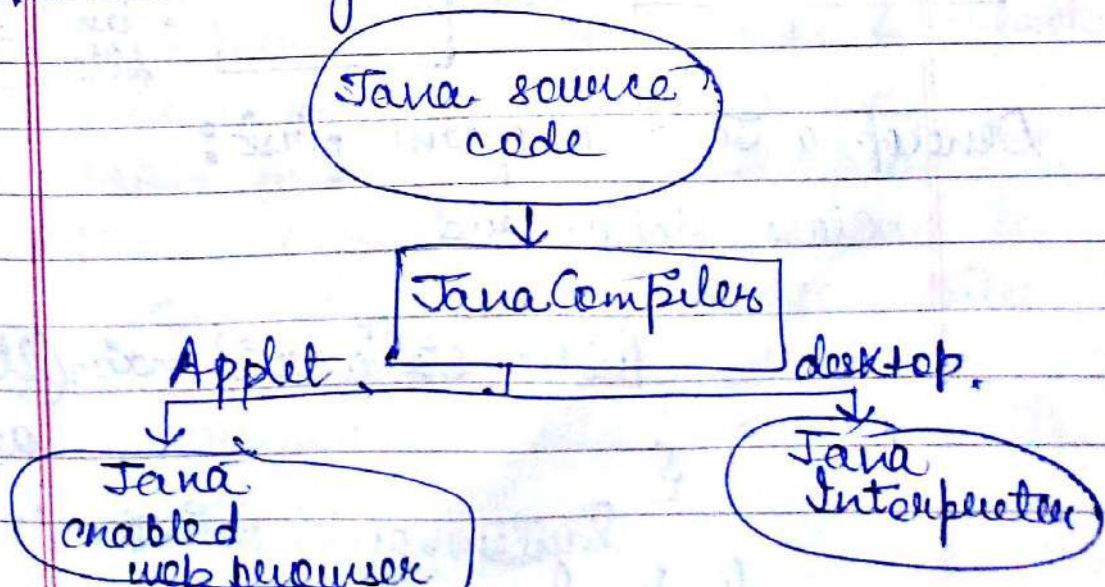 Java source
code
Java Compiler
Applet
desktop.
Java
enabled
web browser
Java
Interpreter